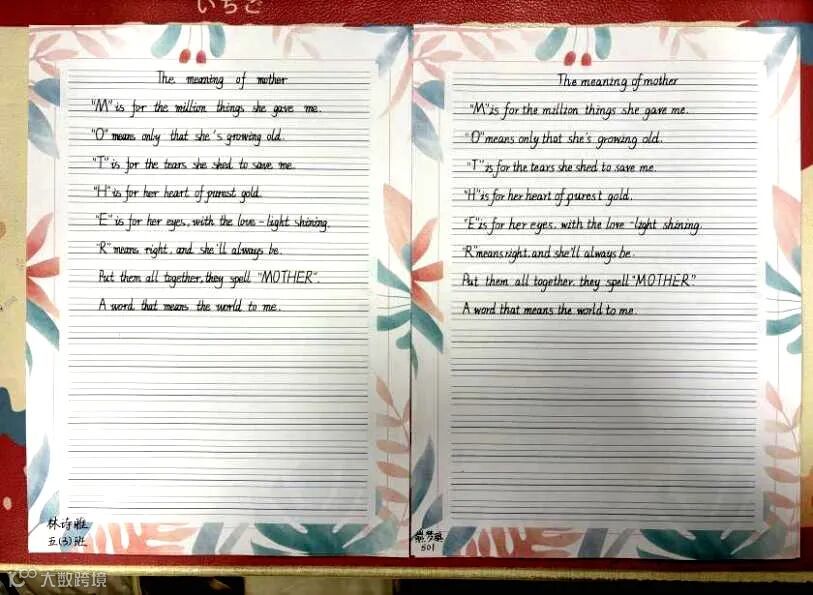 いちご
The meaning of mother
"M" is for the million things she gave me.
"O" means only that she's growing old.
"T" is for the tears she shed to save me.
"H" is for her heart of purest gold.
"E" is for her eyes, with the love-light shining.
"R" means right, and she'll always be.
Put them all together, they spell "MOTHER".
A word that means the world to me.
林诗雅
五(3)班
The meaning of mother
"M" is for the million things she gave me.
"O" means only that she's growing old.
"T" is for the tears she shed to save me.
"H" is for her heart of purest gold.
"E" is for her eyes, with the love-light shining.
"R" means right, and she'll always be.
Put them all together, they spell "MOTHER".
A word that means the world to me.
501
大数跨境